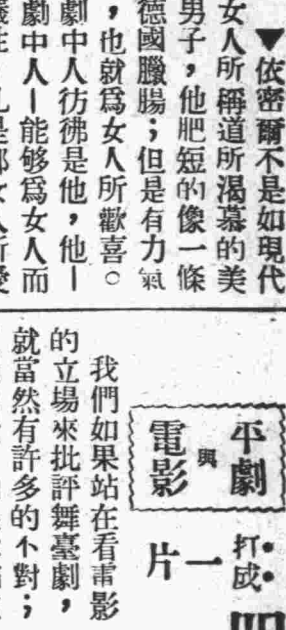 ▼依密爾不是如現代
女人所稱道所渴慕的美
男子，他肥短的像一條
德國臘腸；但是有力氣
，也就爲女人所歡喜。
劇中人彷彿是他，他—
劇中人—能够爲女人而
平劇
與
電影
打成
一片
我們如果站在看電影
的立場來批評舞臺劇，
就當然有許多的不對；